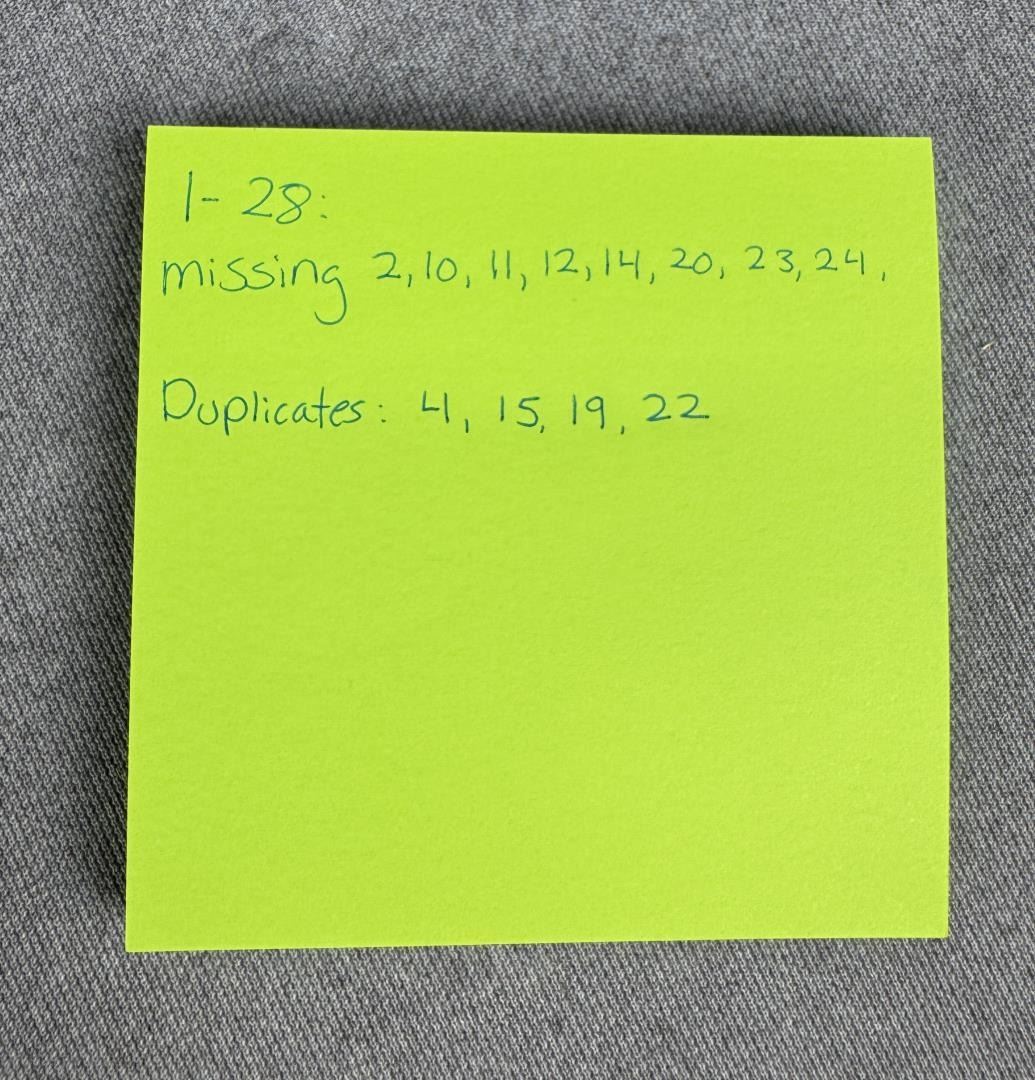 1-28:
missing 2, 10, 11, 12, 14, 20, 23, 24,
Duplicates: 4, 15, 19, 22